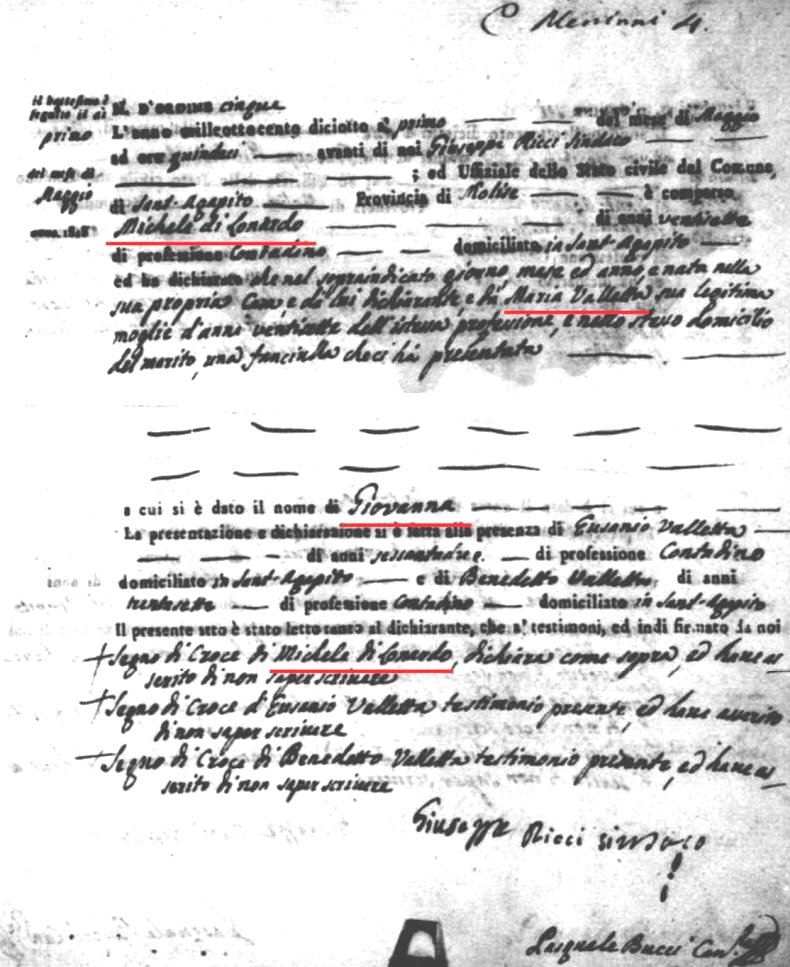 il battesimo è
seguito il dì
primo
del mese di
Maggio
anno 1818
N. D'ORDINE cinque
L'anno milleottocento diciotto a' primo — — del mese di Maggio
ad ore quindici — avanti di noi Giuseppe Ricci Sindaco — —
— — — — ; ed Uffiziale dello Stato civile del Comune,
di Sant-Agapito — Provincia di Molise — — è comparso
Michele di Lonardo — — — — di anni ventisette
di professione Contadino — — domiciliato in Sant-Agapito —
ed ha dichiarato che nel sopraindicato giorno, mese ed anno è nata nella
sua propria Casa, e di lui dichiarante, e di Maria Valletta sua legitima
moglie d'anni ventisette dell'istessa professione, e nello stesso domicilio
del marito, una fanciulla che ci hà presentata — —
— — — — — —
— — — — —
a cui si è dato il nome di Giovanna — — — — —
La presentazione e dichiarazione si è fatta alla presenza di Eusanio Valletta —
— — — di anni sessantadue — di professione Contadino
domiciliato in Sant-Agapito — e di Benedetto Valletta, di anni
trentasette — di professione Contadino — domiciliato in Sant-Agapito
Il presente atto è stato letto tanto al dichiarante, che a' testimoni, ed indi firmato da noi
+ Segno di Croce di Michele di Lonardo, dichiara come sopra, ed have as
serito di non saper scrivere
+ Segno di Croce d'Eusanio Valletta testimonio presente, ed have asserito
di non saper scrivere
+ Segno di Croce di Benedetto Valletta testimonio presente, ed have as
serito di non saper scrivere
Giuseppe Ricci sindaco
Pasquale Bucci